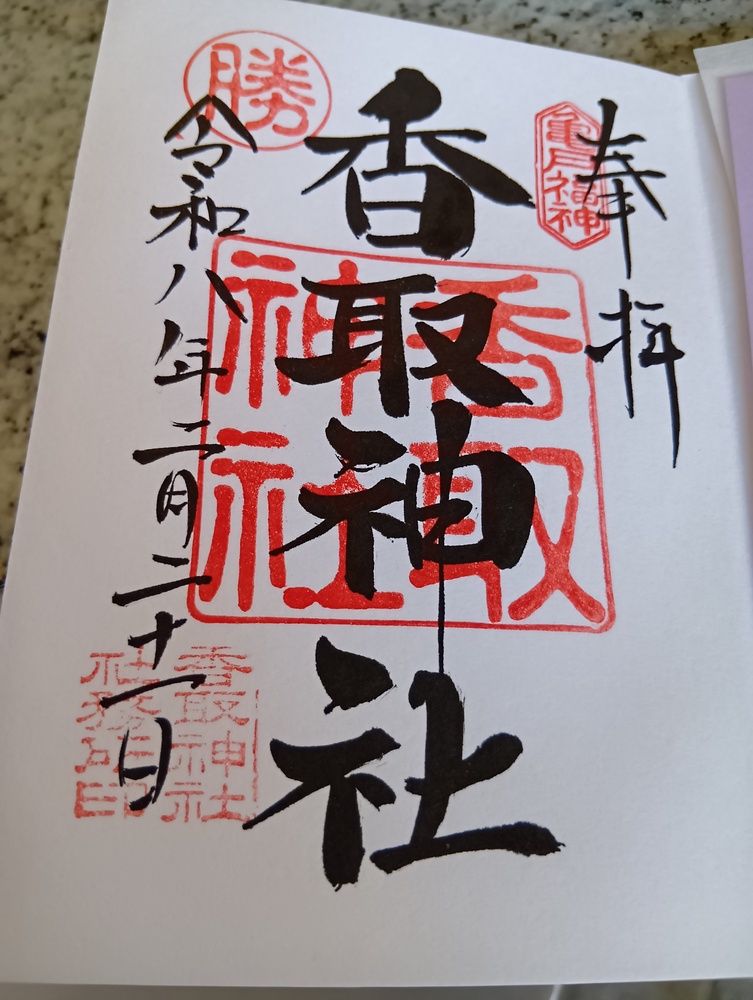 奉拝
亀戸福神
香取神社
香取
神社
勝
令和八年二月二十一日
香取神社
社務所印